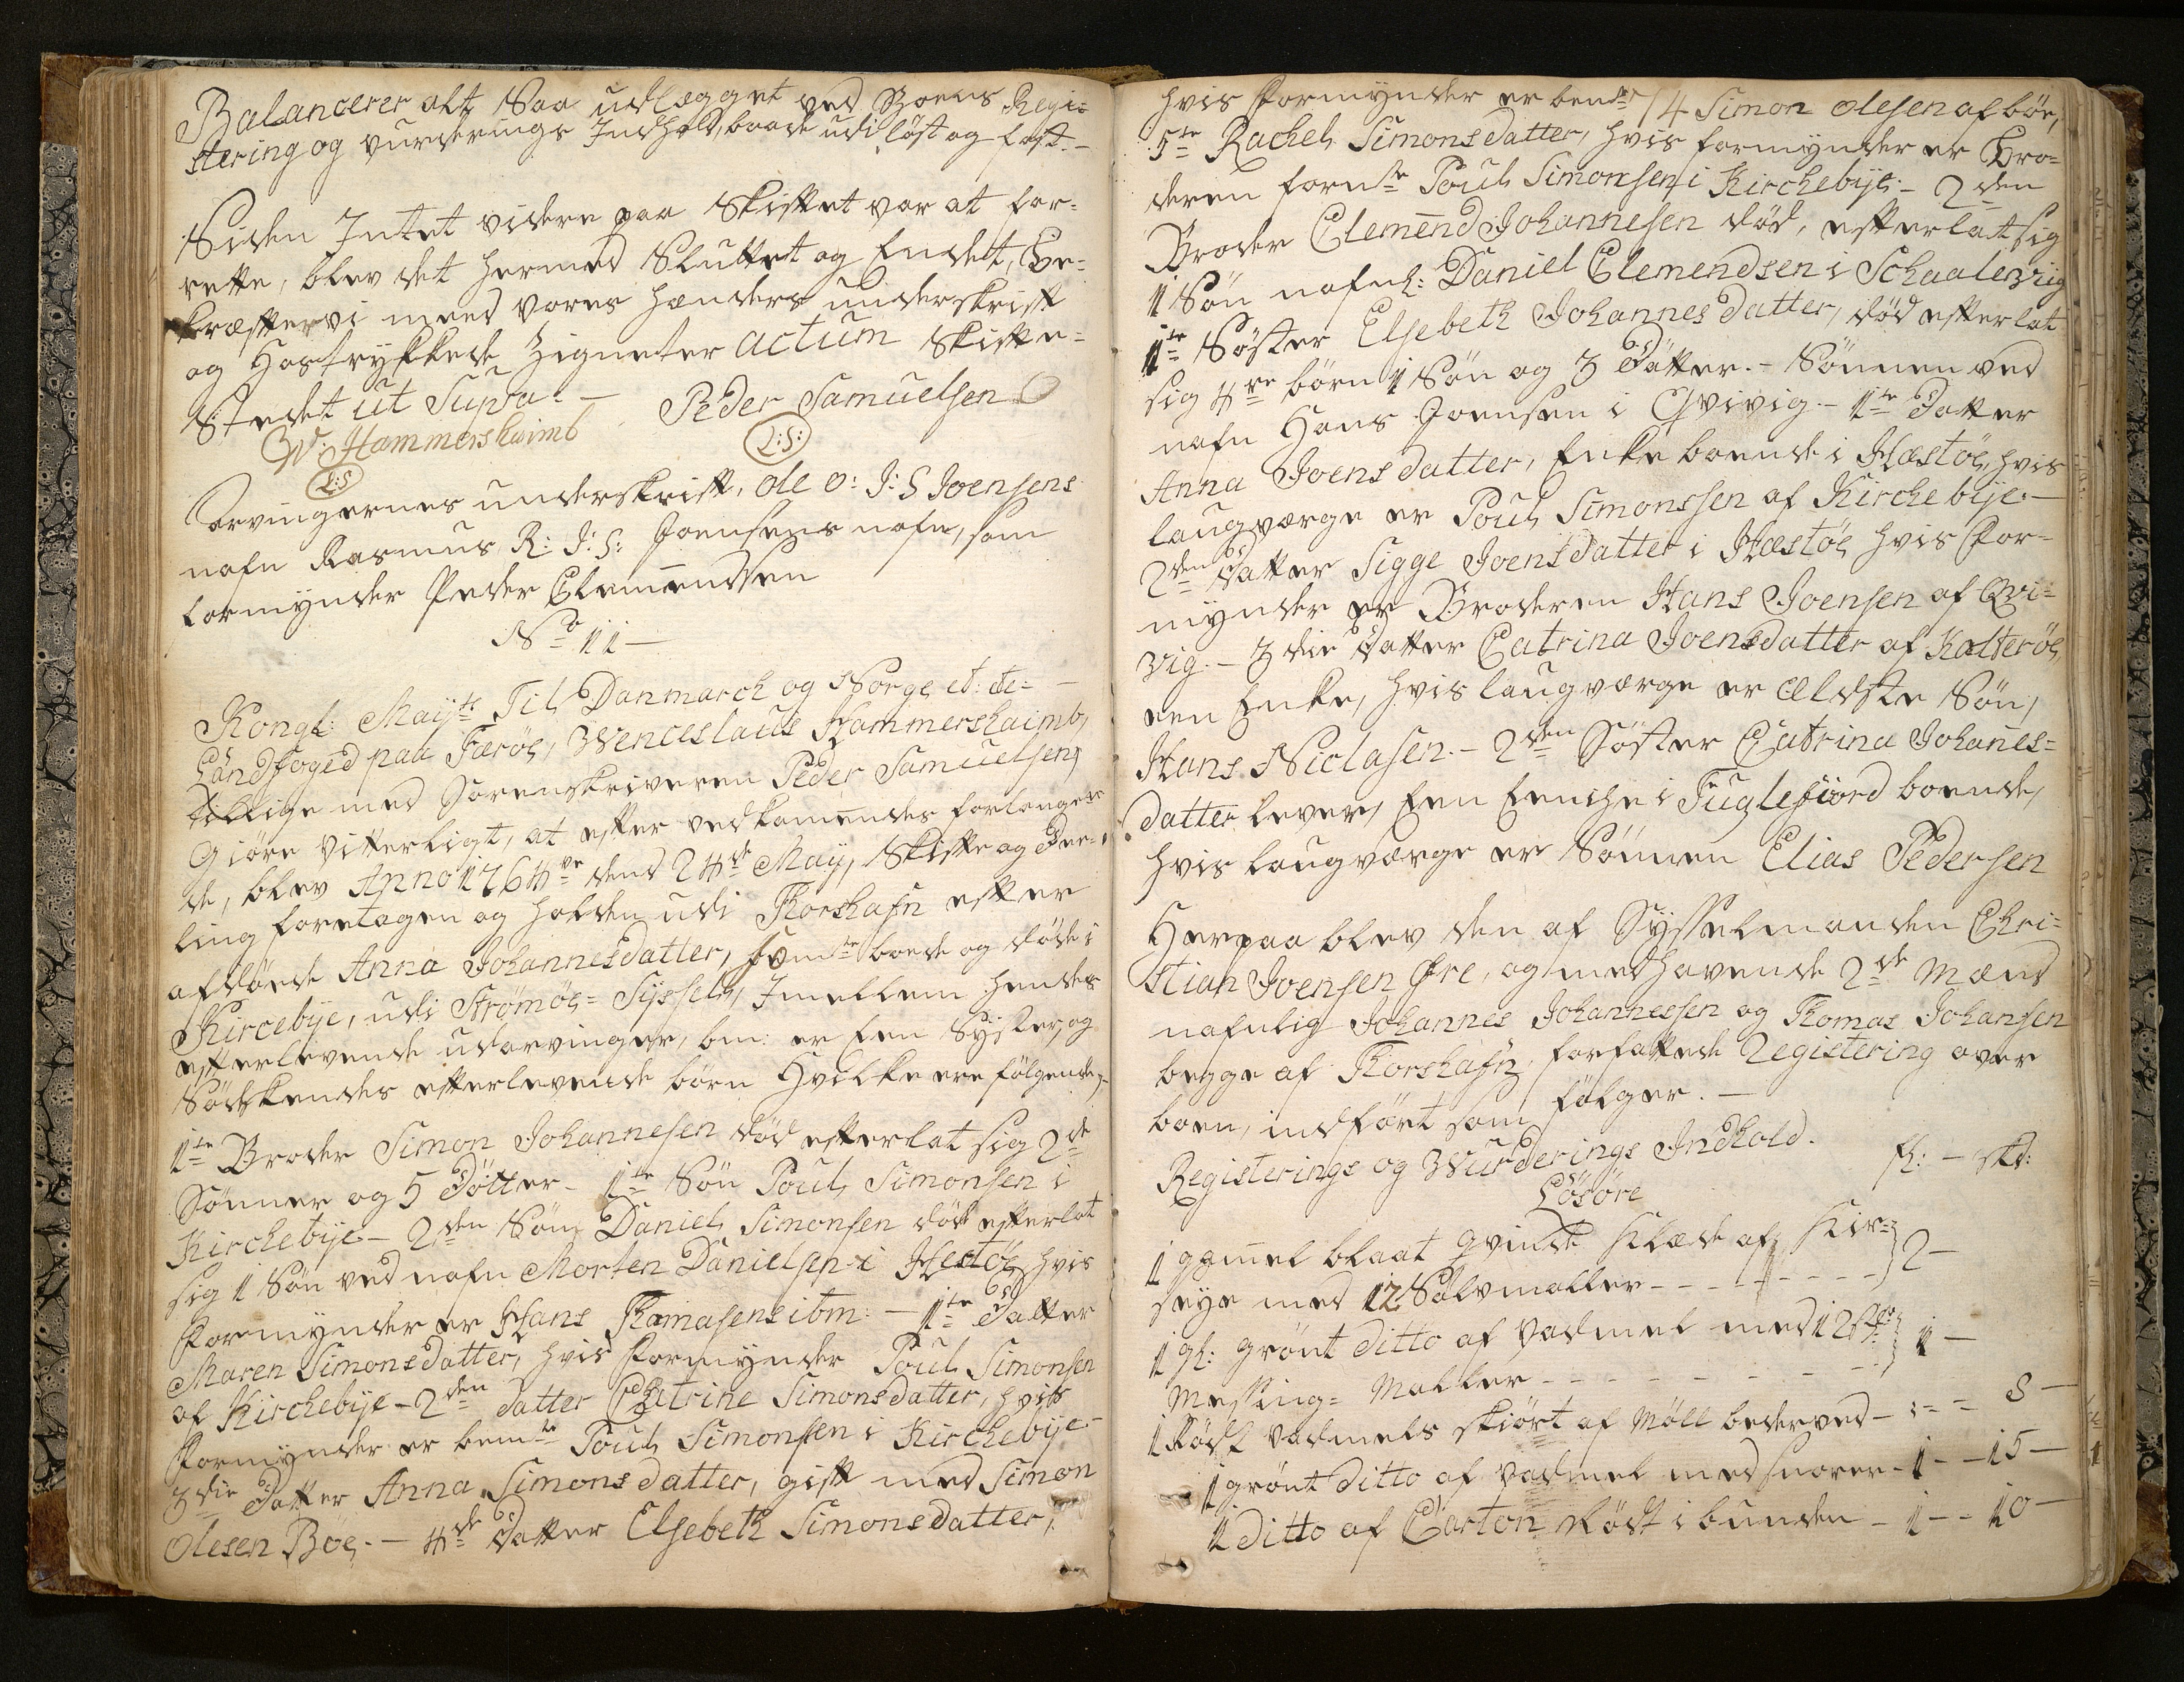 Balancerer alt Saa udlegget ved Boens Regi=
stering og vurderings Indhold, baade udi löst og fast. –
Siden Intet videre paa Skiftet var at for=
rette, blev det hermed Sluttet og Endet, Be=
kræfter vi med vores hænders underskrift
og Hostrykkede Zigneter actum Skifte=
Stedet ut Supra. –
W: Hammershaimb Peder Samuelsen
L:S L:S:
Arvingernes underskrift, ole O: J: S Joensens
nafn Rasmus R: J: S: Joensens nafn, som
formynder Peder Clemendsen
No 11 –
Kongl: Mayts Til Danmarch og Norge et: cte: –
Landfoged paa Færöe, Wenceslaus Hammershaimb,
tillige med Sorenskriveren Peder Samuelsen,
Giöre vitterligt, at efter vedkommendes forlangen=
de, blev Anno 1764re dend 24de May, Skifte og Dee=
ling foretagen og holden udi Thorshafn efter
afdöede Anna Johannesdatter, som boede og döde i
Kircebÿe, udi Strömöe=Sÿssel, Imellem hendes
efterlevende udarvinger, bm: er Een Syster, og
Södskendes efterlevende börn Hvilke ere fölgende,
1te Broder Simon Johannesen död efterlat sig 2de
Sönner og 5 Dötter – 1te Sön Poul Simonsen i
Kirchebÿe – 2den Sön Daniel Simonsen död efterlat
sig 1 Sön ved nafn Morten Danielsen i Hestöe, hvis
Formynder er Hans Thomasen ibm: – 1te Datter
Maren Simonsdatter, hvis Formynder Poul Simonsen
af Kirchebÿe – 2den datter Catrine Simonsdatter, hvis
Formynder er bemte Poul Simonsen i Kirchebÿe –
3die Datter Anna Simonsdatter, gift med Simon
Olesen Böe. – 4de Datter Elsebeth Simonsdatter,
hvis Formynder er bente 4 Simon olesen af böe,
5te Rachel Simonsdatter, hvis formynder er Bro=
deren fornte Poul Simonsen i Kirchebÿe – 2den
Broder Clemend Johannesen död, efterlatt sig
1 Sön nafnl: Daniel Clemendsen i Schaalevig
1te Söster Elsebeth Johannesdatter, död efterlat
sig 4re börn 1 Sön og 3 Dötter. – Sönnen ved
nafn Hans Joensen i Qvivig – 1te Datter
Anna Joensdatter, Enke boende i Hæstöe, hvis
laugværge er Poul Simonssen af Kirchebÿe –
2den datter Sigge Joensdatter i Hæstöe hvis For=
mynder er Broderen Hans Joensen af Qvi=
vig. – 3die datter Catrina Joensdatter af Kalteröe,
een Enke, hvis laugværge er Ældste Sön,
Hans Niclasen. – 2den Söster Catrina Johanes=
datter lever, Een Enche i Fuglefiord boende,
hvis laugværge er Sönnen Elias Pedersen
Herpaa blev den af Sysselmanden Chri=
stian Joensen Öre, og medhavende 2de Mænd
nafnlig Johannes Johannessen og Thomas Johansen
begge af Thorshafn, forfattede Registering over
boen, indfört som fölger. –
Registerings og Wurderings Indhold.
fl: – skd:
Lösöre
1 gamel blaat qvinde Klæde af Kir=
seye med 12 Sölvmaller – – – – – 2 –
1 gl: grönt ditto af vadmel med 12 st:
Messing=Maller – – – – – – 1 –
1 Rödt vadmels skiört af Möll bederved – : – – 8 –
1 grönt ditto af vadmel med snorer – 1 – – 15 –
1 ditto af Carton Rödt i bunden – 1 – – 10 –